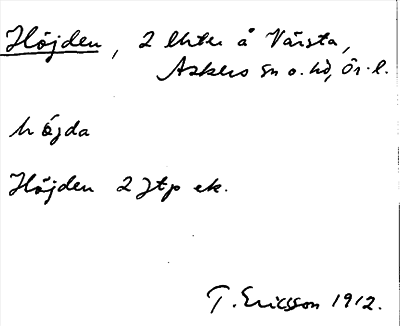 Höjden, 2 lhtr å Värsta,
Askers sn o. hd, Ör. l.
höjda
Höjden 2 jtp ek.
T. Ericsson 1912.